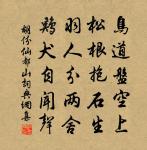 鳥道盤空上
松根抱石生
羽人分兩舍
鷄犬自聞聲
胡份仙都山詞典網集